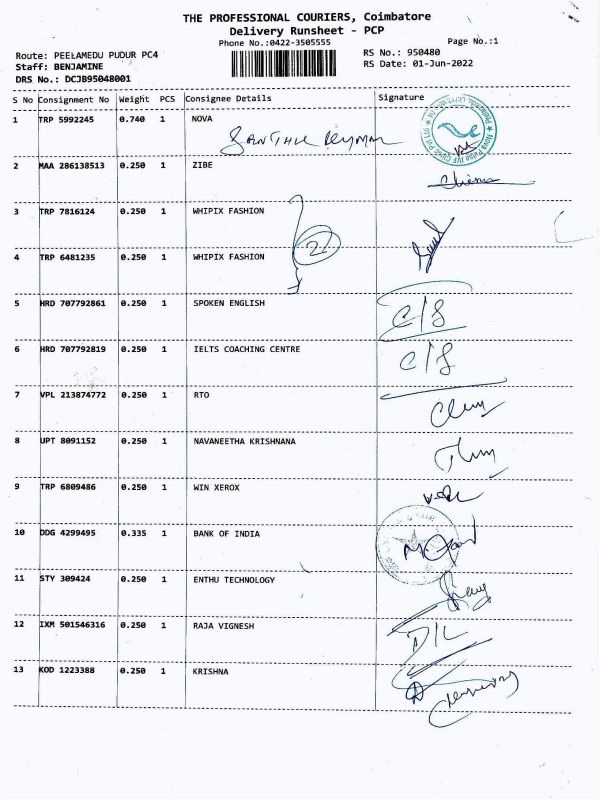 THE PROFESSIONAL COURIERS, Coimbatore
Delivery Runsheet - PCP
Phone No.:0422-3505555
Page No.:1
Route: PEELAMEDU PUDUR PC4
RS No.: 950480
Staff: BENJAMINE
RS Date: 01-Jun-2022
DRS No.: DCJB95048001
S No Consignment No Weight PCS Consignee Details Signature
1 TRP 5992245 0.740 1 NOVA
2 MAA 286138513 0.250 1 ZIBE
3 TRP 7816124 0.250 1 WHIPIX FASHION
2
4 TRP 6481235 0.250 1 WHIPIX FASHION
5 HRD 707792861 0.250 1 SPOKEN ENGLISH
6 HRD 707792819 0.250 1 IELTS COACHING CENTRE
7 VPL 213874772 0.250 1 RTO
8 UPT 8091152 0.250 1 NAVANEETHA KRISHNANA
9 TRP 6809486 0.250 1 WIN XEROX
10 DDG 4299495 0.335 1 BANK OF INDIA
11 STY 309424 0.250 1 ENTHU TECHNOLOGY
12 IXM 501546316 0.250 1 RAJA VIGNESH
13 KOD 1223388 0.250 1 KRISHNA